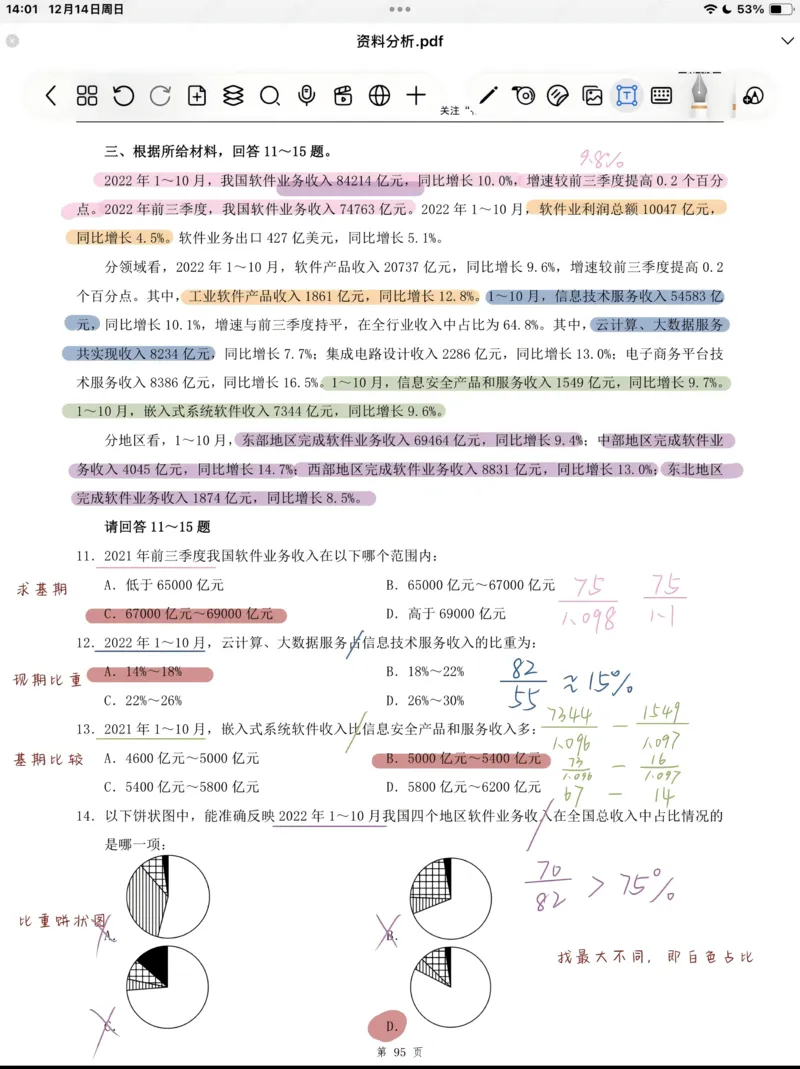 14:01 12月14日周日
53%
资料分析.pdf
关注“
三、根据所给材料，回答 11～15 题。
9.8%
2022 年 1～10 月，我国软件业务收入 84214 亿元，同比增长 10.0%，增速较前三季度提高 0.2 个百分
点。2022 年前三季度，我国软件业务收入 74763 亿元。2022 年 1～10 月，软件业利润总额 10047 亿元，
同比增长 4.5%。软件业务出口 427 亿美元，同比增长 5.1%。
分领域看，2022 年 1～10 月，软件产品收入 20737 亿元，同比增长 9.6%，增速较前三季度提高 0.2
个百分点。其中，工业软件产品收入 1861 亿元，同比增长 12.8%。1～10 月，信息技术服务收入 54583 亿
元，同比增长 10.1%，增速与前三季度持平，在全行业收入中占比为 64.8%。其中，云计算、大数据服务
共实现收入 8234 亿元，同比增长 7.7%；集成电路设计收入 2286 亿元，同比增长 13.0%；电子商务平台技
术服务收入 8386 亿元，同比增长 16.5%。1～10 月，信息安全产品和服务收入 1549 亿元，同比增长 9.7%。
1～10 月，嵌入式系统软件收入 7344 亿元，同比增长 9.6%。
分地区看，1～10 月，东部地区完成软件业务收入 69464 亿元，同比增长 9.4%；中部地区完成软件业
务收入 4045 亿元，同比增长 14.7%；西部地区完成软件业务收入 8831 亿元，同比增长 13.0%；东北地区
完成软件业务收入 1874 亿元，同比增长 8.5%。
请回答 11～15 题
11. 2021 年前三季度我国软件业务收入在以下哪个范围内：
求基期
A. 低于 65000 亿元 B. 65000 亿元～67000 亿元
75 75
C. 67000 亿元～69000 亿元 D. 高于 69000 亿元
1.098 1.1
12. 2022 年 1～10 月，云计算、大数据服务占信息技术服务收入的比重为：
现期比重
A. 14%～18% B. 18%～22%
82
55 ≈15%
C. 22%～26% D. 26%～30%
13. 2021 年 1～10 月，嵌入式系统软件收入比信息安全产品和服务收入多：
7344 — 1549
1.096 1.097
基期比较
A. 4600 亿元～5000 亿元 B. 5000 亿元～5400 亿元
73 — 16
1.096 1.097
C. 5400 亿元～5800 亿元 D. 5800 亿元～6200 亿元
67 — 14
14. 以下饼状图中，能准确反映 2022 年 1～10 月我国四个地区软件业务收入在全国总收入中占比情况的
是哪一项：
70
82 > 75%
比重饼状图
A. B.
找最大不同，即白色占比
C. D.
第 95 页